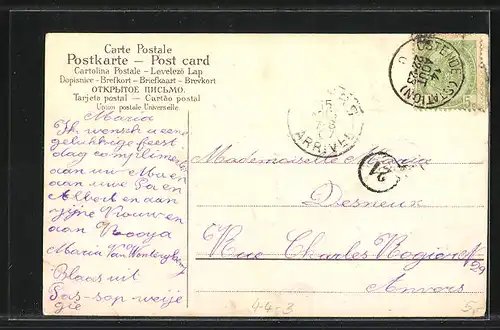 Carte Postale
Postkarte – Post card
Cartolina Postale – Levelező Lap
Dopisnice – Brefkort – Briefkaart – Brevkort
ОТКРЫТОЕ ПИСЬМО.
Tarjeta postal – Cartão postal
Union postale Universelle
OSTENDE (STATION)
14
AOUT
22-23
15
ARRIVEE
21
Maria
Ik wensch u eene
gelukkige feest
dag complimenten
aan uw Ma en
aan uwe Pa en
Albert en aan
zijne Vrouw en
aan
Maria Van
Blaas uit
Mademoiselle Maria
Desneux
Rue Charles Rogier No 29
Anvers
44-3
5,-